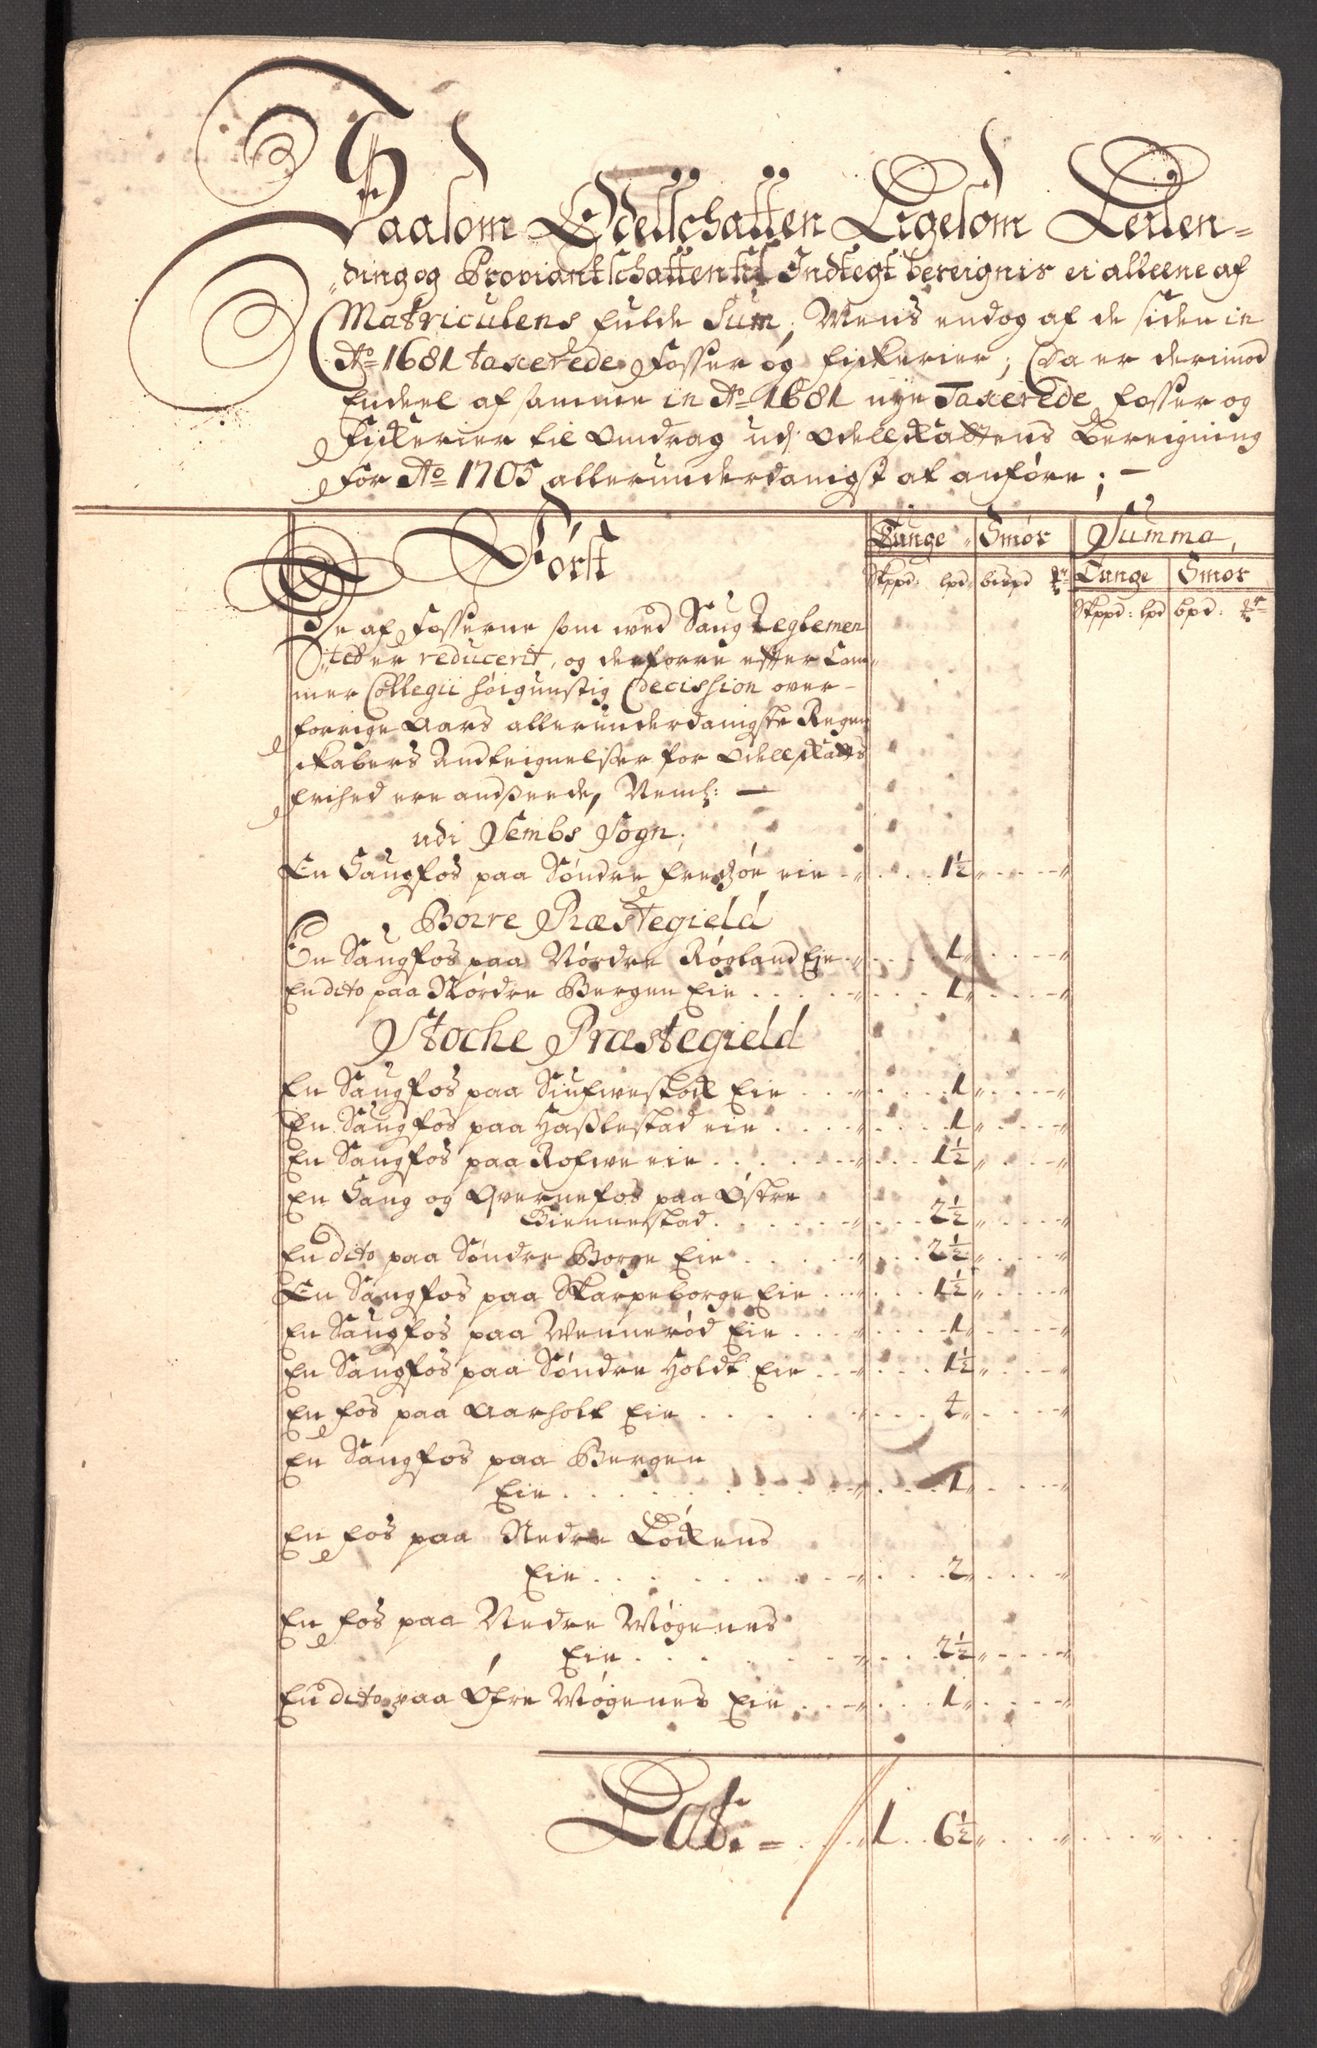 Saasom Odelschatten Ligesom Leilen-
ding og Proviantschatten til Indtegt bereignis ei alleene af
Matriculens fulde Sum, Mens endog af de siden in
Ao 1681 taxerede Fosser og fiskerier; Da er derimod
Endeel af samme in Ao 1681 nye Taxerede fosser og
Fiskerier til omdrag udj odelskattens Bereigning
for Ao 1705 allerunderdanigst at anføre; —
Først
Tunge Smør Summa,
Skppd: lpd: bispd Tunge Smør
Skppd: lpd bpd:
De af Fosserne som wed Saug Reglemen
tet er reducerit, og derforre efter Cam-
mer Collegii høigunstig Decission over
forrige Aars allerunderdanigste Regen
skabers Andteignelsser for Odelskatts
frihed ere andseede, Neml: —
udi Sembs Sogn;
En Saugfos paa Søndre eie 1½
Borre Præstegield
En Saugfos paa Nordre Røgland Eie 1
En dito paa Nordre Bergen Eie 1
Stoche Præstegield
En Saugfos paa Eie 1
En Saugfos paa Hasslestad eie 1
En Saugfos paa Rofwe eie 1½
En Saug og Qvernefos paa Østre
Giennestad 2½
En dito paa Søndre Borge Eie 2½
En Saugfos paa Skarpeborge Eie 1½
En Saugfos paa Wennerød Eie 1
En Saugfos paa Søndre Holdt Eie 1½
En fos paa Aarholt Eie
En Saugfos paa Bergen
Eie 1
En fos paa Nedre
Eie 2
En fos paa Nedre Møgenes
Eie 2½
En dito paa Øfre Møgenes Eie 1
Lat. 1 6½